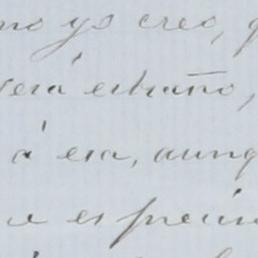 mo yo creo,
será estraño,
á esa, aunq
e es precis